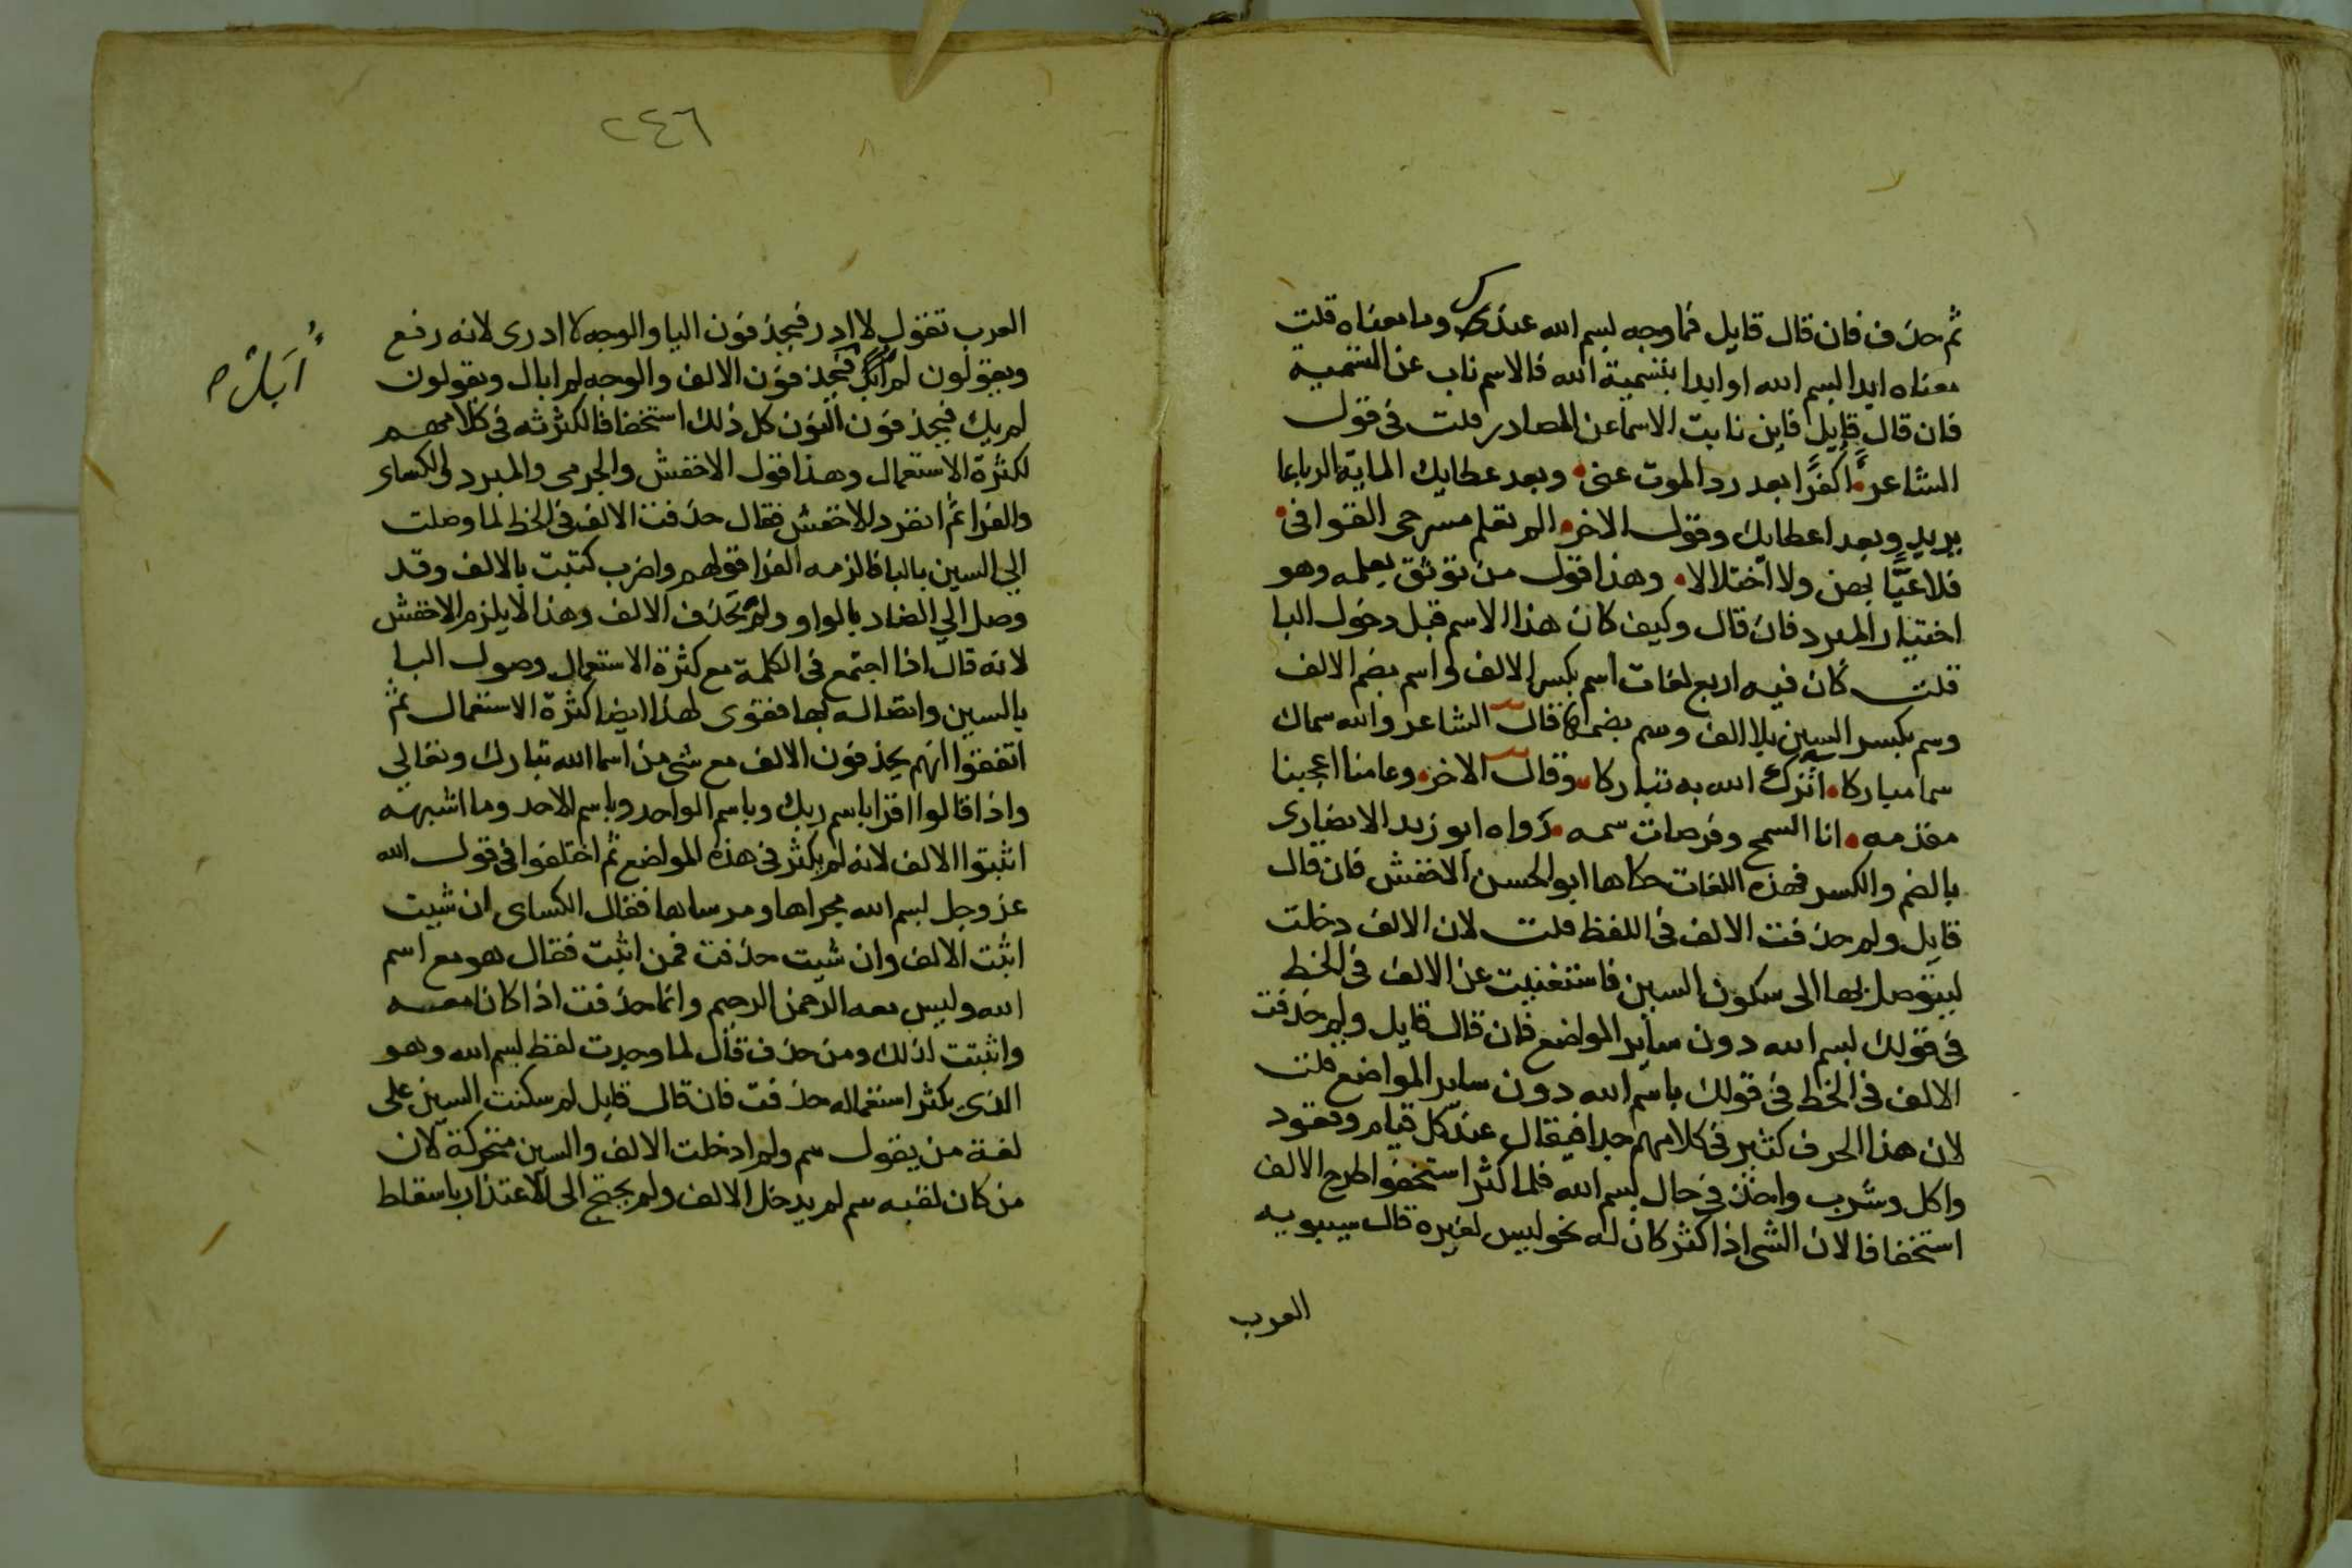 ثم حذف فان قال قايل فما وجه بسم الله عندك وما معناه قلت
معناه ابدا بسم الله او ابدا بتسمية الله فالاسم ناب عن التسمية
فان قال قايل فاين نابت الاسما عن المصادر قلت في قول
الشاعر أكفرًا بعد رد الموت عني وبعد عطايك الماية الرباعا
يريد وبعد اعطايك وقول الاخر الم تعلم مسرحي القوافي
فلا عيًّا بهن ولا اختلالا وهذا قول من نوثق بعلمه وهو
اختيار المبرد فان قال وكيف كان هذا الاسم قبل دخول البا
قلت كان فيه اربع لغات اسم بكسر الالف واسم بضم الالف
وسم بكسر السين بلا الف وسم بضمها قال الشاعر والله سماك
سما مباركا اثرك الله به تباركا وقال الاخر وعامنا اعجبنا
مقدمه انا السمح وقرصات سمه رواه ابو زيد الانصارى
بالضم والكسر فهذه اللغات حكاها ابو الحسن الاخفش فان قال
قايل ولم حذفت الالف في اللفظ قلت لان الالف دخلت
ليتوصل بها الى سكون السين فاستغنيت عن الالف في الخط
في قولك بسم الله دون ساير المواضع فان قال قايل ولم حذفت
الالف في الخط في قولك باسم الله دون ساير المواضع قلت
لان هذا الحرف كثير في كلامهم جدا فيقال عند كل قيام وقعود
واكل وشرب واخذ في حال بسم الله فلما كثر استخفوا طرح الالف
استخفافا لان الشي اذا كثر كان له نحو ليس لغيره قال سيبويه
العرب
٢٤٦
العرب تقول لا ادر فيحذفون اليا والوجه لا ادرى لانه رفع
ويقولون لم ابل فيحذفون الالف والوجه لم ابال ويقولون
لم يك فيحذفون النون كل ذلك استخفافا لكثرته في كلامهم
لكثرة الاستعمال وهذا قول الاخفش والجرمى والمبرد والكساى
والفرا ثم انفرد الاخفش فقال حذفت الالف في الخط لما وصلت
الي السين بالبا فالزمه الفرا قولهم واضرب كتبت بالالف وقد
وصل الي الضاد بالواو ولم تحذف الالف وهذا لا يلزم الاخفش
لانه قال اذا اجتمع في الكلمة مع كثرة الاستعمال وصول البا
بالسين واتصاله بها فقوى لهذا ايضا كثرة الاستعمال ثم
اتفقوا انهم يحذفون الالف مع شي من اسما الله تبارك وتعالي
واذا قالوا اقرا باسم ربك وباسم الواحد وباسم الاحد وما اشبهه
اثبتوا الالف لانه لم يكثر في هذه المواضع ثم اختلفوا في قول الله
عز وجل بسم الله مجراها ومرساها فقال الكساى ان شيت
اثبت الالف وان شيت حذفت فمن اثبت فقال هو مع اسم
الله وليس معه الرحمن الرحيم وانما حذفت اذا كان معه
واثبتت لذلك ومن حذف قال لما وجدت لفظ بسم الله وهو
الذي يكثر استعماله حذفت فان قال قايل لم سكنت السين على
لغة من يقول سم ولم ادخلت الالف والسين متحركة لان
من كان لغته سم لم يدخل الالف ولم يحتج الى الاعتذار باسقاط